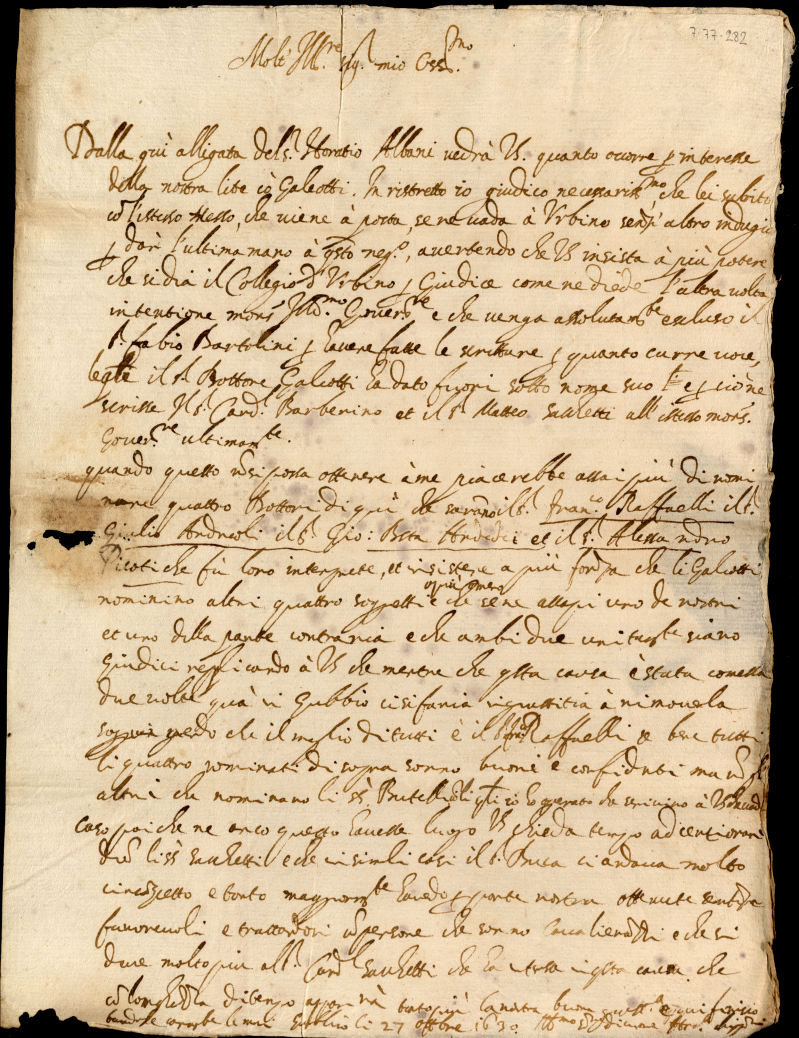 7.77.282
Molt' Ill.re sig.r mio Oss.mo
Dalla quì alligata del s.r Horatio Albani vedrà VS. quanto ocorre p interesse
della nostra lite cō Galeotti. In ristretto io giudico necessariss.mo che lei subito
cō l'istesso Messo, che viene à posta, se ne vada à Urbino senz' altro indugio
p dar l'ultima mano à qsto neg.o, avertendo che VS insista à più potere
che si dia il Collegio d' Urbino p Giudice come ne diede l'altra volta
intentione mons.r Ill.mo Govern.re e che venga assolutam.te escluso il
s.r fabio Bartolini p havere fatte le scritture p quanto curre voce,
il s.r Dottore Galeotti ha dato fuori sotto nome suo e p ciò ne
scrisse il s.r Card. Barberino et il s.r Matteo sacchetti all' istesso mons.r
Gover.re ultimam.te.
quando questo nō si possa ottenere à me piacerebbe assai più di nomi
nare quattro Dottori di quì che sarāno il s.r fran.co Raffaelli il s.r
Giulio Andreoli il s.r Gio: Batta Andedei et il s.r Alessandro
Picoti che fù loro interprete, et insistere a più forza che li Galeotti
nominino altri quattro soggetti e che se ne alla più uno de nostri
et uno della parte contraria e che ambi due unitam.te siano
Giudici replicando à VS che mentre che qsta causa è stata comessa
due volte quà in Gubbio ci si faria ingiustitia à rimoverla
che il meglio di tutti è il s.r Raffaelli se bene tutti
li quattro nominati di sopra sonno buoni e confidenti ma nō gli
altri che nominano li ss.ri
Caso poi che ne anco questo havesse luogo VS chieda tempo ad certiorari
li ss.ri sacchetti e che in simili casi il s.r Duca ci andava molto
circōspetto e tanto maggiorm.te havendo p parte nostra ottenute sentenze
favorevoli e trattandosi cō persone che sonno e che si
deve molto più all s.r Card.l sacchetti che ha in qsta causa che
cō longhezza di tempo la nostra buona e qui finisco
Gubbio li 27 ottobre 1630